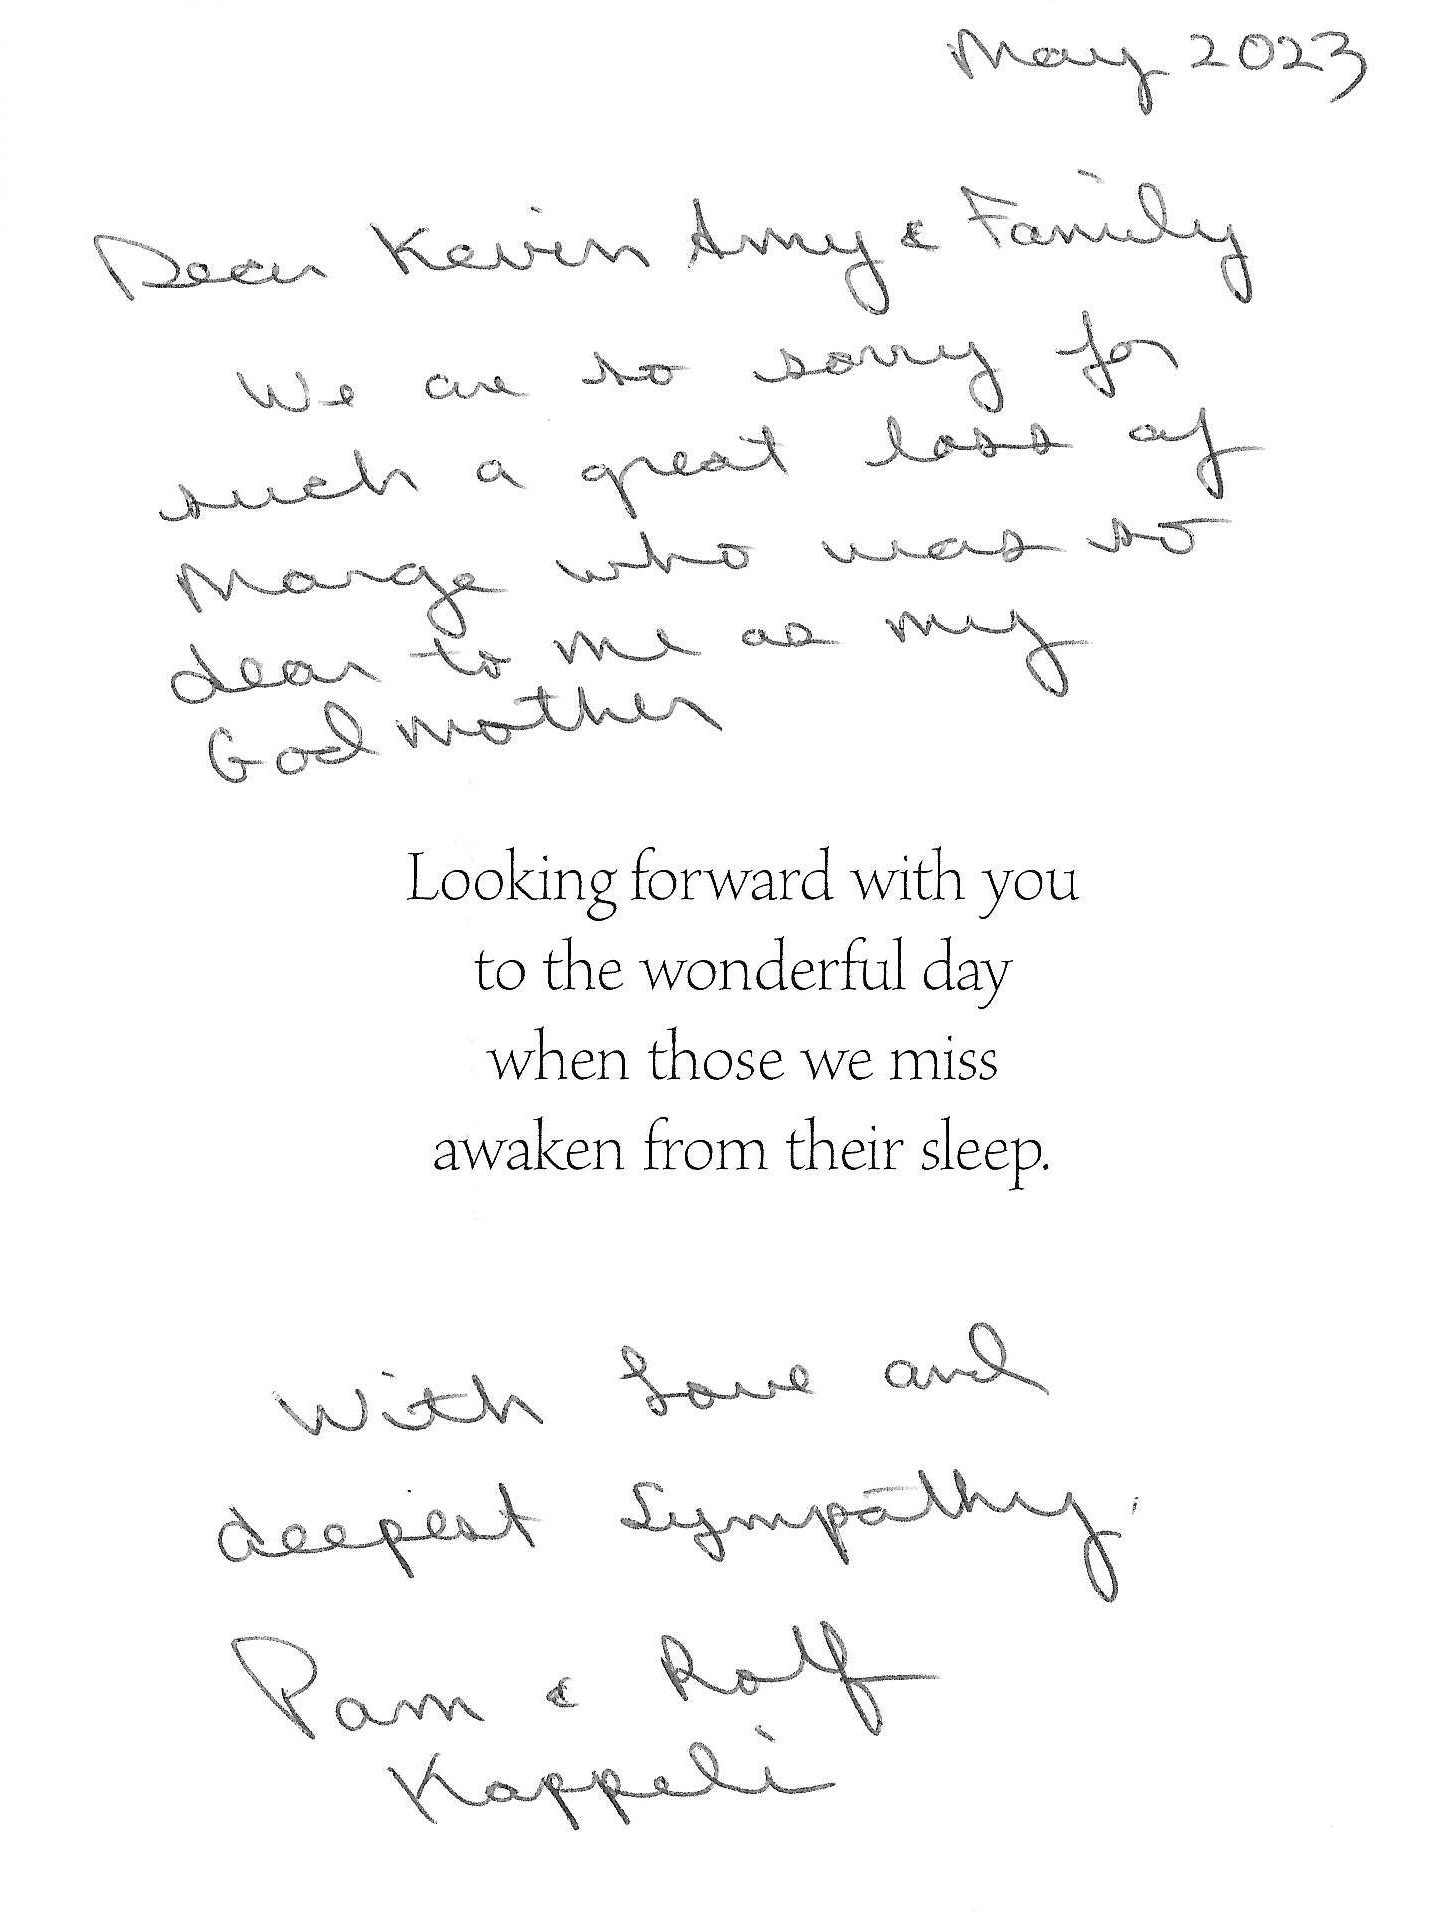 May 2023
Dear Kevin Amy & Family
We are so sorry for
such a great loss of
Marge who was so
dear to me as my
Godmother
Looking forward with you
to the wonderful day
when those we miss
awaken from their sleep.
With Love and
deepest Sympathy.
Pam & Rolf
Kappeli